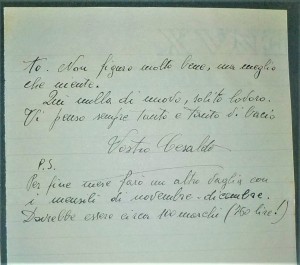 to. Non figuro molto bene, ma meglio
che niente.
Qui nulla di nuovo, solito lavoro.
Vi penso sempre tanto e tanto Vi bacio
Vostro Cesaldo
P.S.
Per fine mese farò un altro vaglia con
i mensili di novembre - dicembre.
Dovrebbe essere circa 110 marchi (760 lire!)